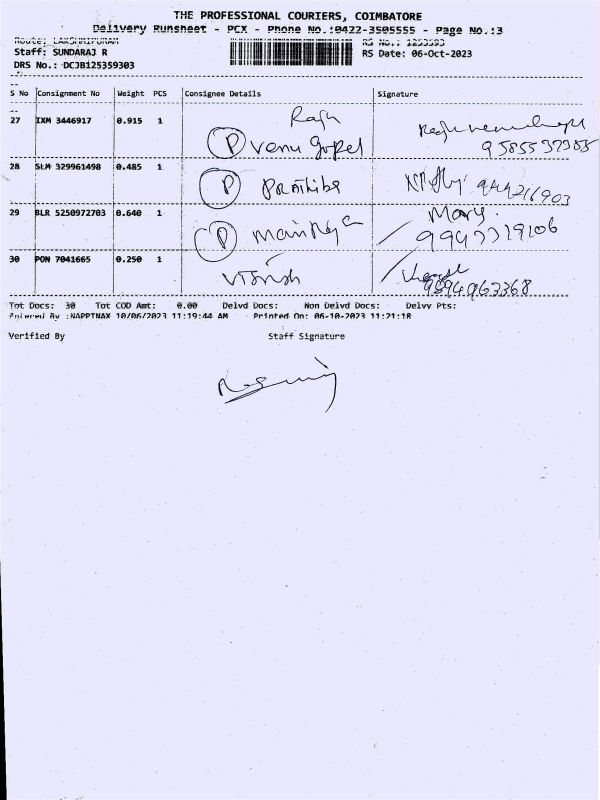 THE PROFESSIONAL COURIERS, COIMBATORE
Delivery Runsheet - PCX - Phone No.:0422-3505555 - Page No.:3
Route: LAKSHMIPURAM
RS No.: 1253593
Staff: SUNDARAJ R
RS Date: 06-Oct-2023
DRS No.: DCJB125359303
S No Consignment No Weight PCS Consignee Details Signature
27 IXM 3446917 0.915 1 Raju
P Venu Gopel
28 SLM 329961498 0.485 1 P Prathiba
29 BLR 5250972703 0.640 1 P
Mary
30 PON 7041665 0.250 1
Tot Docs: 30 Tot COD Amt: 0.00 Delvd Docs: Non Delvd Docs: Delvy Pts:
Entered By :NAPPINAX 10/06/2023 11:19:44 AM Printed On: 06-10-2023 11:21:18
Verified By Staff Signature